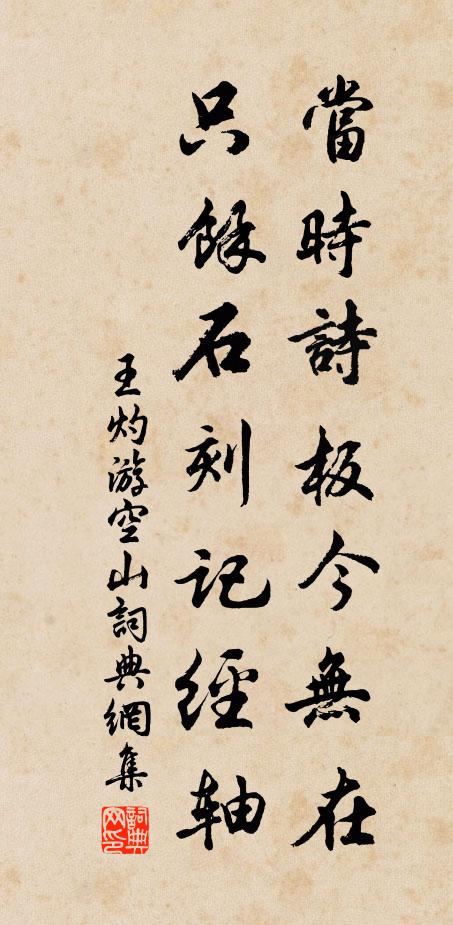 當時詩板今無在
只餘石刻記經軸
王灼游空山詞典網集
詞典网印